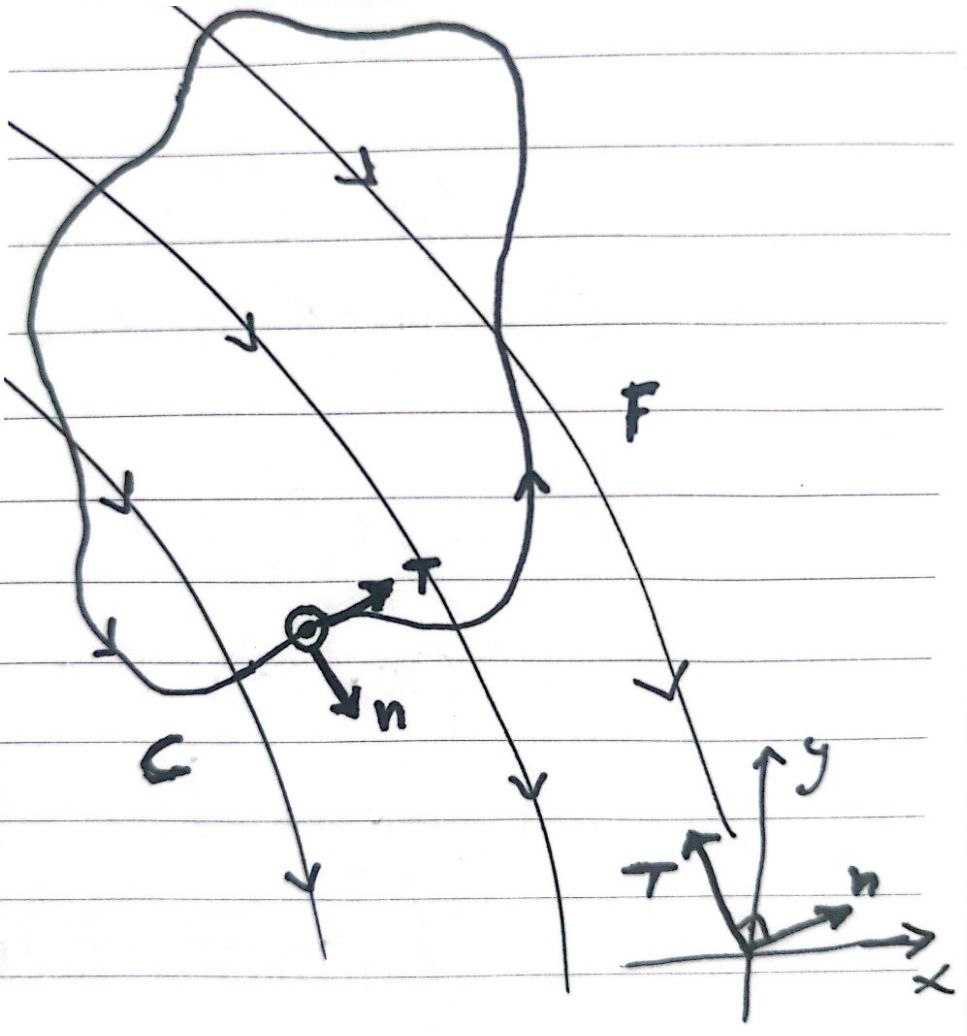 F
T
n
C
y
T
n
x